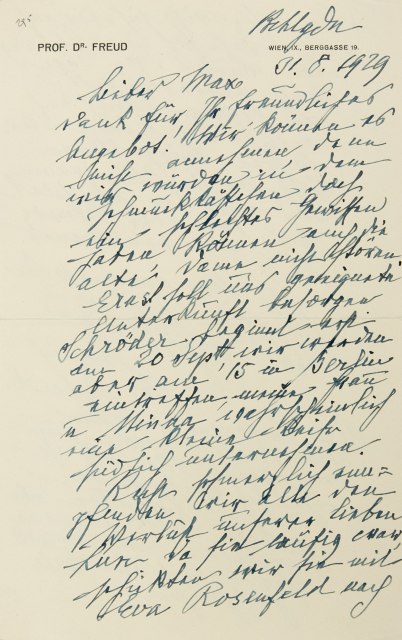 PROF. DR. FREUD
WIEN, IX., BERGGASSE 19.
31. 8. 1929
Lieber Max
Dank für Ihr freundliches
Angebot. Wir können es
nicht annehmen, denn
wir würden in dem
Schmuckkästchen doch
ein schlechtes Gewissen
haben können auch die
alte Dame nicht stören.
Ernst soll uns geeignete
Unterkunft besorgen
Schröder beginnt erst
am 20 Sept wir werden
aber am 15 in Berlin
eintreffen, meine Frau
u Minna wahrscheinlich
eine kleine Reise
südlich unternehmen.
schmerzlich em=
pfinden wir alle den
Verlust unserer lieben
da sie läufig war,
schickten wir sie mit
Eva Rosenfeld nach